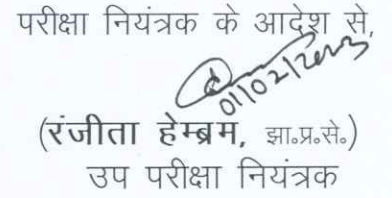 परीक्षा नियंत्रक के आदेश से,
01/02/2023
(रंजीता हेम्ब्रम, झा॰प्र॰से॰)
उप परीक्षा नियंत्रक